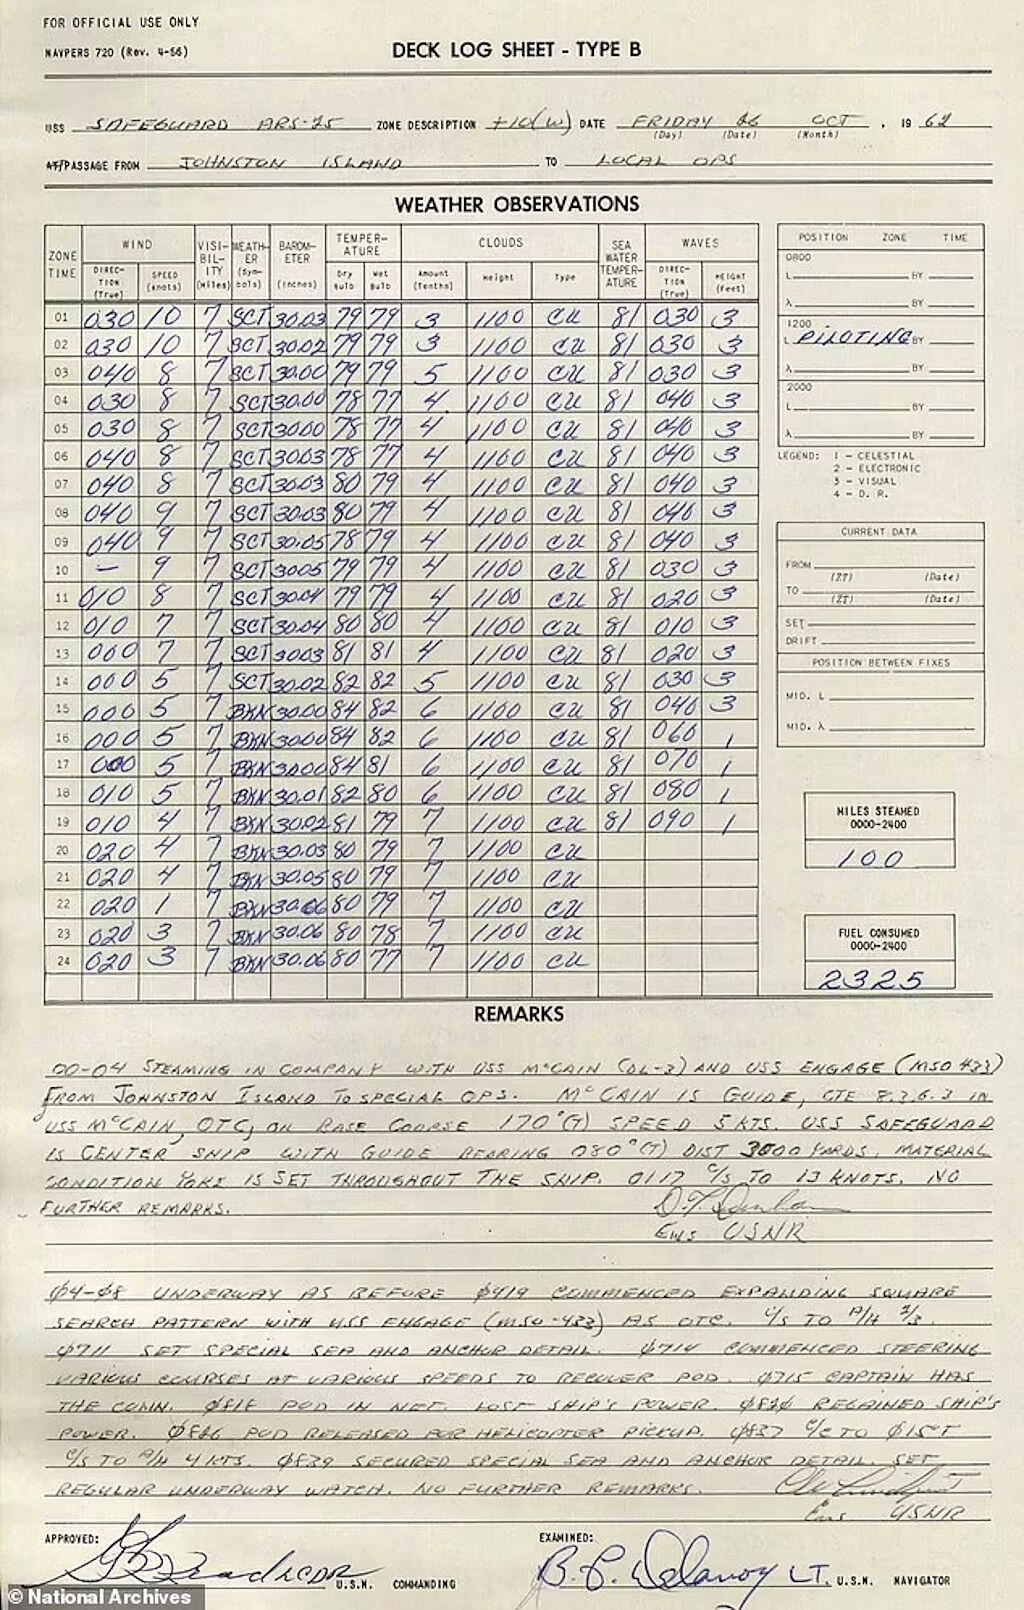 FOR OFFICIAL USE ONLY
NAVPERS 720 (Rev. 4-56)
DECK LOG SHEET - TYPE B
USS SAFEGUARD ARS-25 ZONE DESCRIPTION +10(W) DATE FRIDAY 26 OCT, 1962
(Day) (Date) (Month)
AT/PASSAGE FROM JOHNSTON ISLAND TO LOCAL OPS
WEATHER OBSERVATIONS
ZONE TIME WIND VISIBILITY (Miles) WEATHER (Symbols) BAROMETER (Inches) TEMPERATURE CLOUDS SEA WATER TEMPERATURE WAVES
DIRECTION (True) SPEED (knots) Dry Bulb Wet Bulb Amount (Tenths) Height Type DIRECTION (True) HEIGHT (Feet)
01 030 10 7 SCT 30.03 79 79 3 1100 CU 81 030 3
02 030 10 7 SCT 30.02 79 79 3 1100 CU 81 030 3
03 040 8 7 SCT 30.00 79 79 5 1100 CU 81 030 3
04 030 8 7 SCT 30.00 78 77 4 1100 CU 81 040 3
05 030 8 7 SCT 30.00 78 77 4 1100 CU 81 040 3
06 040 8 7 SCT 30.03 78 77 4 1100 CU 81 040 3
07 040 8 7 SCT 30.03 80 79 4 1100 CU 81 040 3
08 040 9 7 SCT 30.03 80 79 4 1100 CU 81 040 3
09 040 9 7 SCT 30.05 78 79 4 1100 CU 81 040 3
10 — 9 7 SCT 30.05 79 79 4 1100 CU 81 030 3
11 010 8 7 SCT 30.04 79 79 4 1100 CU 81 020 3
12 010 7 7 SCT 30.04 80 80 4 1100 CU 81 010 3
13 000 7 7 SCT 30.03 81 81 4 1100 CU 81 020 3
14 000 5 7 SCT 30.02 82 82 5 1100 CU 81 030 3
15 000 5 7 BKN 30.00 84 82 6 1100 CU 81 040 3
16 000 5 7 BKN 30.00 84 82 6 1100 CU 81 060 1
17 000 5 7 BKN 30.00 84 81 6 1100 CU 81 070 1
18 010 5 7 BKN 30.01 82 80 6 1100 CU 81 080 1
19 010 4 7 BKN 30.02 81 79 7 1100 CU 81 090 1
20 020 4 7 BKN 30.03 80 79 7 1100 CU
21 020 4 7 BKN 30.05 80 79 7 1100 CU
22 020 1 7 BKN 30.06 80 79 7 1100 CU
23 020 3 7 BKN 30.06 80 78 7 1100 CU
24 020 3 7 BKN 30.06 80 77 7 1100 CU
POSITION ZONE TIME
0800
L BY
λ BY
1200
L PILOTING BY
λ BY
2000
L BY
λ BY
LEGEND: 1 - CELESTIAL
2 - ELECTRONIC
3 - VISUAL
4 - D. R.
CURRENT DATA
FROM
(ZT) (Date)
TO
(ZT) (Date)
SET
DRIFT
POSITION BETWEEN FIXES
MID. L
MID. λ
MILES STEAMED
0000-2400
100
FUEL CONSUMED
0000-2400
2325
REMARKS
00-04 STEAMING IN COMPANY WITH USS McCAIN (DL-3) AND USS ENGAGE (MSO 433)
FROM JOHNSTON ISLAND TO SPECIAL OPS. McCAIN IS GUIDE, CTE 8.3.6.3 IN
USS McCAIN, OTC, ON BASE COURSE 170°(T) SPEED 5 KTS. USS SAFEGUARD
IS CENTER SHIP WITH GUIDE BEARING 080°(T) DIST 3000 YARDS. MATERIAL
CONDITION YOKE IS SET THROUGHOUT THE SHIP. 0117 C/S TO 13 KNOTS. NO
FURTHER REMARKS.
Ens USNR
04-08 UNDERWAY AS BEFORE 0419 COMMENCED EXPANDING SQUARE
SEARCH PATTERN WITH USS ENGAGE (MSO-433) AS OTC. C/S TO A/H 2/3.
0711 SET SPECIAL SEA AND ANCHOR DETAIL. 0714 COMMENCED STEERING
VARIOUS COURSES AT VARIOUS SPEEDS TO RECOVER POD. 0715 CAPTAIN HAS
THE CONN. 0818 POD IN NET. LOST SHIP'S POWER. REGAINED SHIP'S
POWER. 0826 POD RELEASED FOR HELICOPTER PICKUP. 0837 C/C TO 015°T
C/S TO A/H 4 KTS. 0839 SECURED SPECIAL SEA AND ANCHOR DETAIL. SET
REGULAR UNDERWAY WATCH. NO FURTHER REMARKS.
Ens USNR
APPROVED: LCDR U.S.N. COMMANDING
EXAMINED: B. P. Delanoy LT. U.S.N. NAVIGATOR
© National Archives